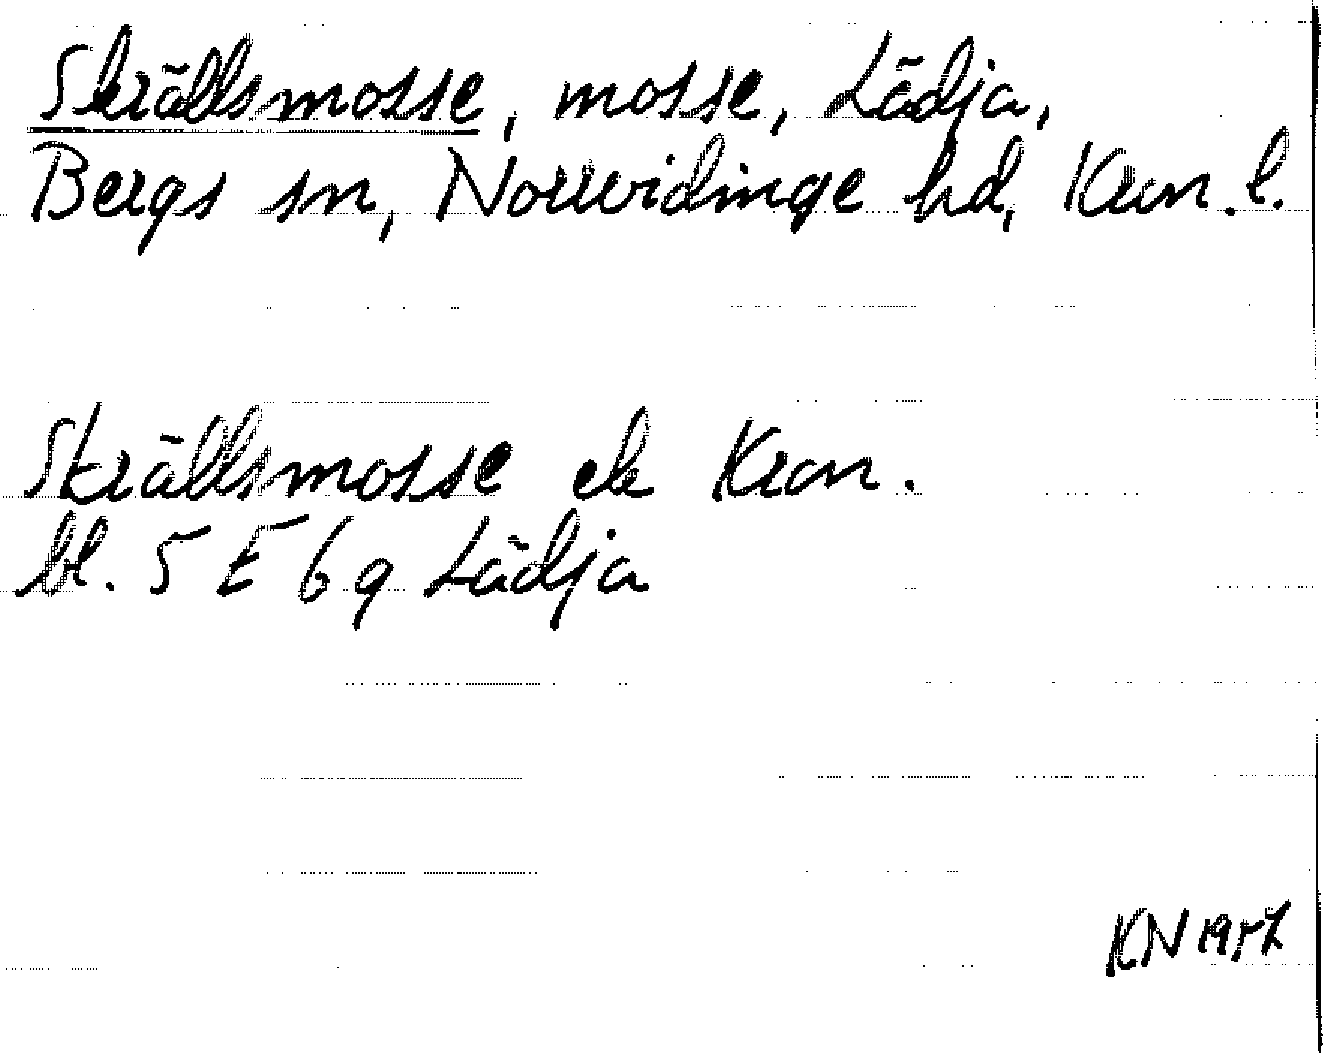 Skrällsmosse, mosse, Lädja,
Bergs sn, Norrvidinge hd, Kron. l.
Skrällsmosse ek Kron.
bl. 5 E 6 g Lädja
KN